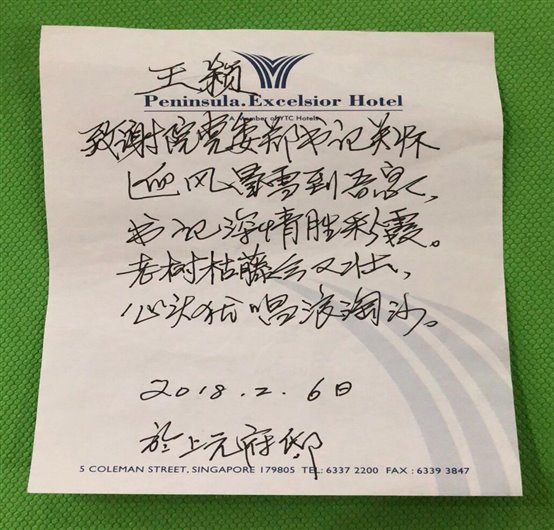 王颖
Peninsula.Excelsior Hotel
A Member of YTC Hotels
致谢院党委郑书记关怀
迎风暴雪到吾家，
书记深情胜彩霞。
老树枯藤会又壮，
心头犹唱浪淘沙。
2018.2.6日
於上元府邸
5 COLEMAN STREET, SINGAPORE 179805 TEL: 6337 2200 FAX : 6339 3847